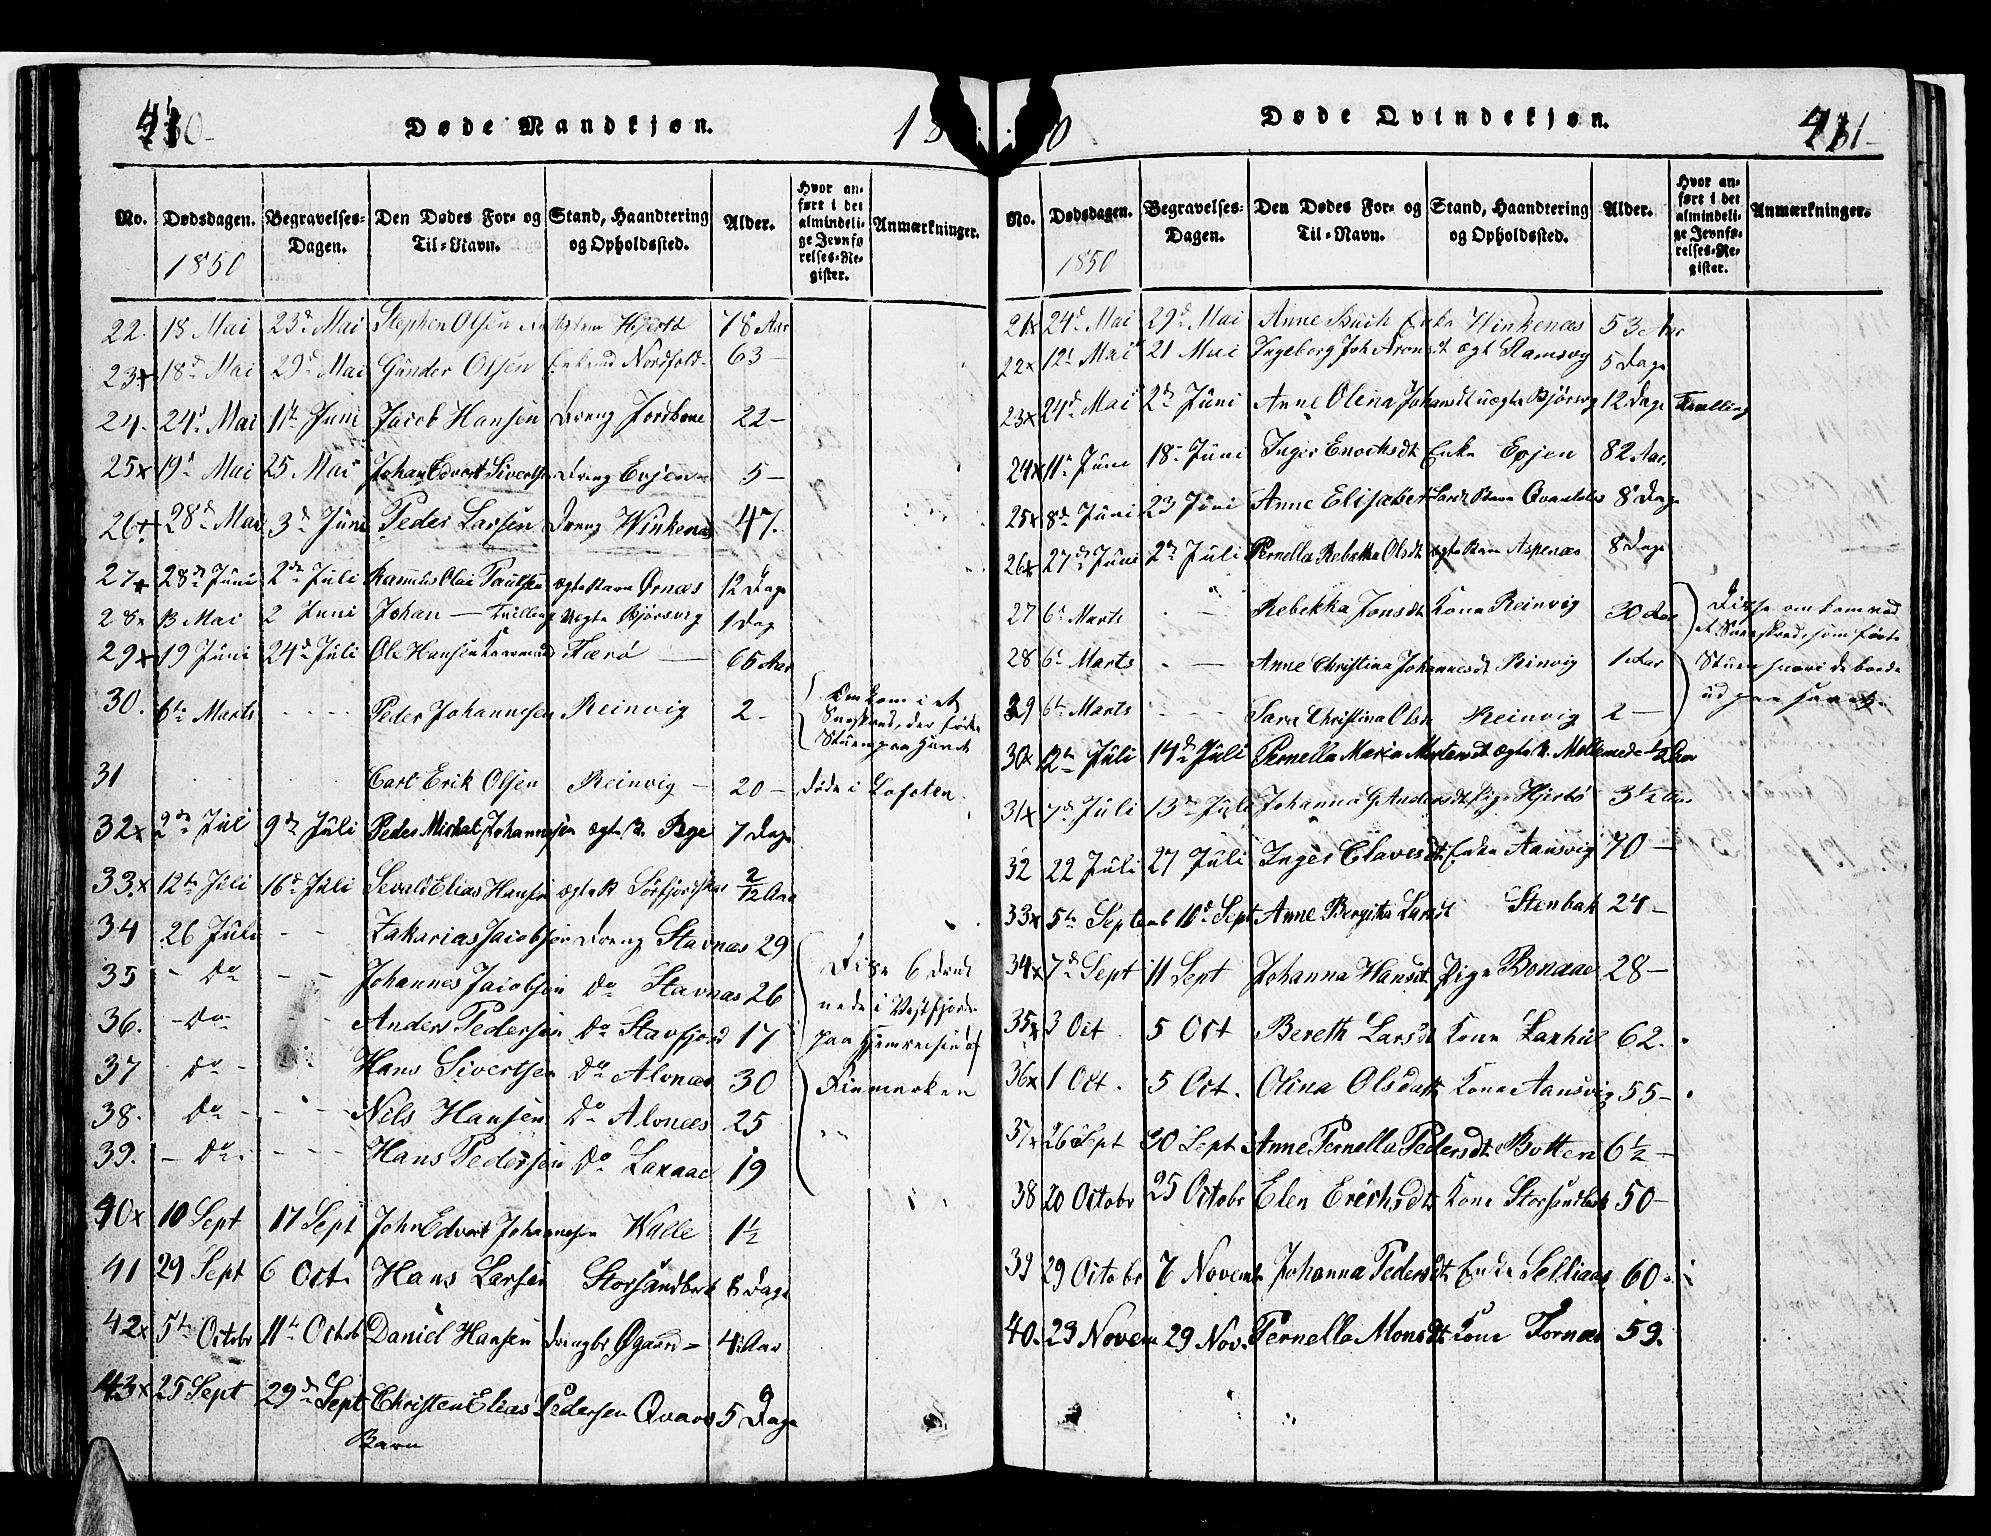 Døde Mandkjøn.
No. Dødsdagen. Begravelses-Dagen. Den Dødes For- og Til-Navn. Stand, Haandtering og Opholdssted. Alder. Hvor anført i det almindelige Jevnførelses-Register. Anmærkninger.
1850
22. 18 Mai 23d Mai Stephen Olsen Hjertø 78 Aar
23x 18d Mai 29d Mai Gunder Olsen Nordfold 63 -
24. 24d Mai 11te Juni Jacob Hansen Dreng Jordbroe 22 -
25x 19d Mai 25 Mai Johan Edvert Sivertsen Dreng Evjen 5 -
26x 28d Mai 3d Juni Peder Larsen Dreng Winkenæs 47.
27x 28de Juni 2de Juli Rasmus Olai Paulsen ægte Barn Ørnæs 12 Dage
28. 13 Mai 2 Juni Johan - Tvilling Uegte Bjørsvig 1 Dag
29x 19 Juni 24d Juli Ole Hansen Færø - 65 Aar
30. 6te Marts - - - Peder Johannesen Reinvig 2 - Omkom i et Sneskred, der førte Stuen paa Havet
31 Carl Erik Olsen Reinvig - 20 - døde i Lofoten
32x 2de Juli 9de Juli Peder Mickal Johannesen ægte B. Bge 7 Dage
33.x 12te Juli 16d Juli Sevald Elias Hansen ægte B Sørfjordskar 2/12 Aar
34 26 Juli - - Zakarias Jacobsen Dreng Stavnæs 29 Disse 6 druk
35 - Do - - Johannes Jacobsen Do Stavnæs 26 nede i Vestfjorden
36. - Do - - Anders Pedersen Do Stavfjord 17 paa Hjemreisen af
37 Do - Hans Sivertsen Do Alvnæs 30 Finmarken
38. Do - - - Nils Hansen Do Alvnæs 25
39. - Do - - - Hans Pedersen Do Laxaae 19
40x 10 Sept 17 Sept John Edvert Johannesen Walle 1½
41 29 Sept 6 Oct. Hans Larsen Storsandbek 8 Dage
42x 5te Octobr 11te Octob Daniel Hansen Drengbr Øgaard - 4 Aar
43x 25 Sept 29d Sept Christen Elias Pedersen Qvarv 5 Dage
Barn
Døde Qvindekjøn.
No. Dødsdagen. Begravelses-Dagen. Den Dødes For- og Til-Navn. Stand, Haandtering og Opholdssted. Alder. Hvor anført i det almindelige Jevnførelses-Register. Anmærkninger.
1850
21x 24d Mai 29d Mai Anne Buch Enke Winkenæs 53 Aar
22x 12d Mai 21 Mai Ingeborg Joh Aronsdt ægt Ramsvig 5 Dage
23x 24d Mai 2de Juni Anne Olina Johansdt uægte Bjørsvig 12 Dage Tvilling
24x 11te Juni 18 Juni Inger Enochsdt Enke Evjen 82 Aar
25x 8de Juni 23 Juni Anne Elisabet Larsdt Barn 8 Dage
26x 27de Juni 2de Juli Pernella Rebekka Olsdt ægte Barn Aspenæs 8 Dage
27 6te Marts - Rebekka Jonsdt Kone Reinvig 30 Aar Disse omkom ved
28 6te Marts - Anne Christina Johannesdt Reinvig 1 Aar et Sneskred, som førte
29 6te Marts - - - Sara Christina Olsdt Reinvig 2 - Stuen hvori de boede ud paa Havet.
30x 12te Juli 14d Juli Pernella Maria Mortensdt ægte B.
31x 7de Juli 13de Juli Johanna G Andersdt Pige Hjertø 3½ Aar
32 22 Juli 27 Juli Inger Clavesdt Enke Aansvig 70 -
33x 5te Septemb 10d Sept Anne Bergitta Larsdt Stenbak 24 -
34x 7d Sept 11 Sept Johanna Hansdt Pige Bonaae 28 -
35x 3 Oct 5 Oct Bereth Larsdt Kone Laxhul 62.
36x 1 Oct. 5 Oct. Olina Olsdatt Kone Aansvig 55 -
37x 26 Sept 30 Sept Anne Pernella Pedersdt Botten 6½ -
38 20 Octobr 25 Octobr Elen Erichsdt Kone Storsandbek 50 -
39 29 Octobr 7 Novemb Johanna Pedersdt Enke Selliaas 60 -
40. 23 Novem 29 Nov. Pernella Monsdt Kone Fornæs 59.